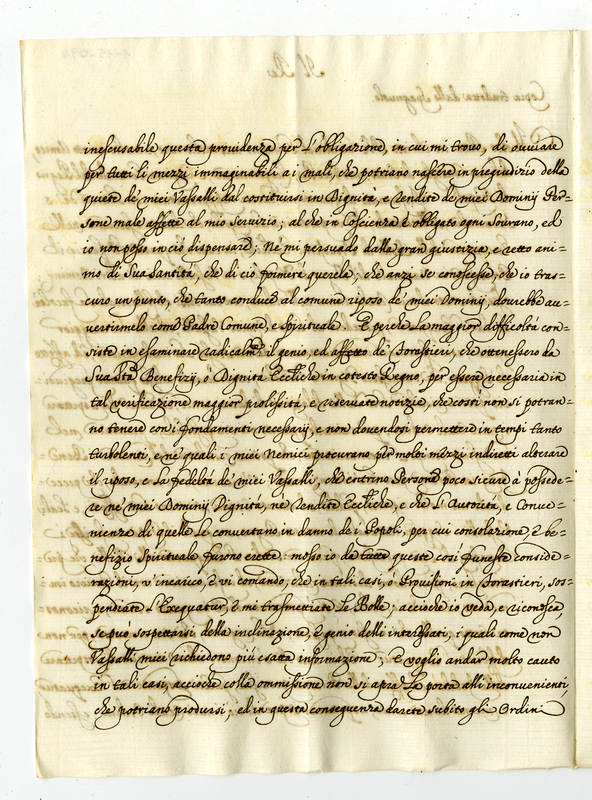 inescusabile questa providenza per l'obligazione, in cui mi trovo, di ouuiare
per tutti li mezzi immaginabili a i mali, che potriano nascere in pregiudizio della
quiete de' miei Vassalli dal costituirsi in Dignità, e rendite de' miei Dominij Per=
sone male affette al mio servizio; al che in Coscienza è obligato ogni Sourano, ed
io non posso in ciò dispensare; Nè mi persuado dalla gran giustizia, e retto ani=
mo di Sua Santità, che di ciò formerà querela; che anzi se conoscesse, che io tras=
curo un punto, che tanto conduce al comune riposo de' miei Dominij, dourebbe au=
vertirmelo come Padre Comune, e Spirituale. E perche la maggior difficoltà con=
siste in esaminare radicalm.te il genio, ed affetto de' Forastieri, che ottenessero da
Sua S.tà Benefizij, ò Dignità Eccl.che in cotesto Regno, per essere necessaria in
tal verificazione maggior prolissità, e riservate notizie, che costì non si potran=
no tenere con i fondamenti necessarij, e non dovendosi permettere in tempi tanto
turbolenti, e ne' quali i miei Nemici procurano per molti mezzi indiretti alterare
il riposo, e la fedeltà de' miei Vassalli, che entrino Persone poco sicure à possede=
re ne' miei Dominij Dignità, nè rendite Eccl.che, e che l'Autorità, e Conve=
nienze di quelle le convertano in danno de i Popoli, per cui consolazione, e be=
nefizio Spirituale furono erette: mosso io da tutte queste così funeste conside=
razioni, v'incarico, e vi comando, che in tali casi, ò Provisioni in Forastieri, sos=
pendiate l'Exequatur, e mi trasmettiate le Bolle; acciochè io veda, e riconosca
se può sospettarsi della inclinazione, e genio delli interessati, i quali come non
Vassalli miei richiedono più esatta informazione; E voglio andar molto cauto
in tali casi, acciochè colla ommissione non si apra la porta alli inconvenienti
che potriano prodursi; ed in questa conseguenza darete subito gli Ordini